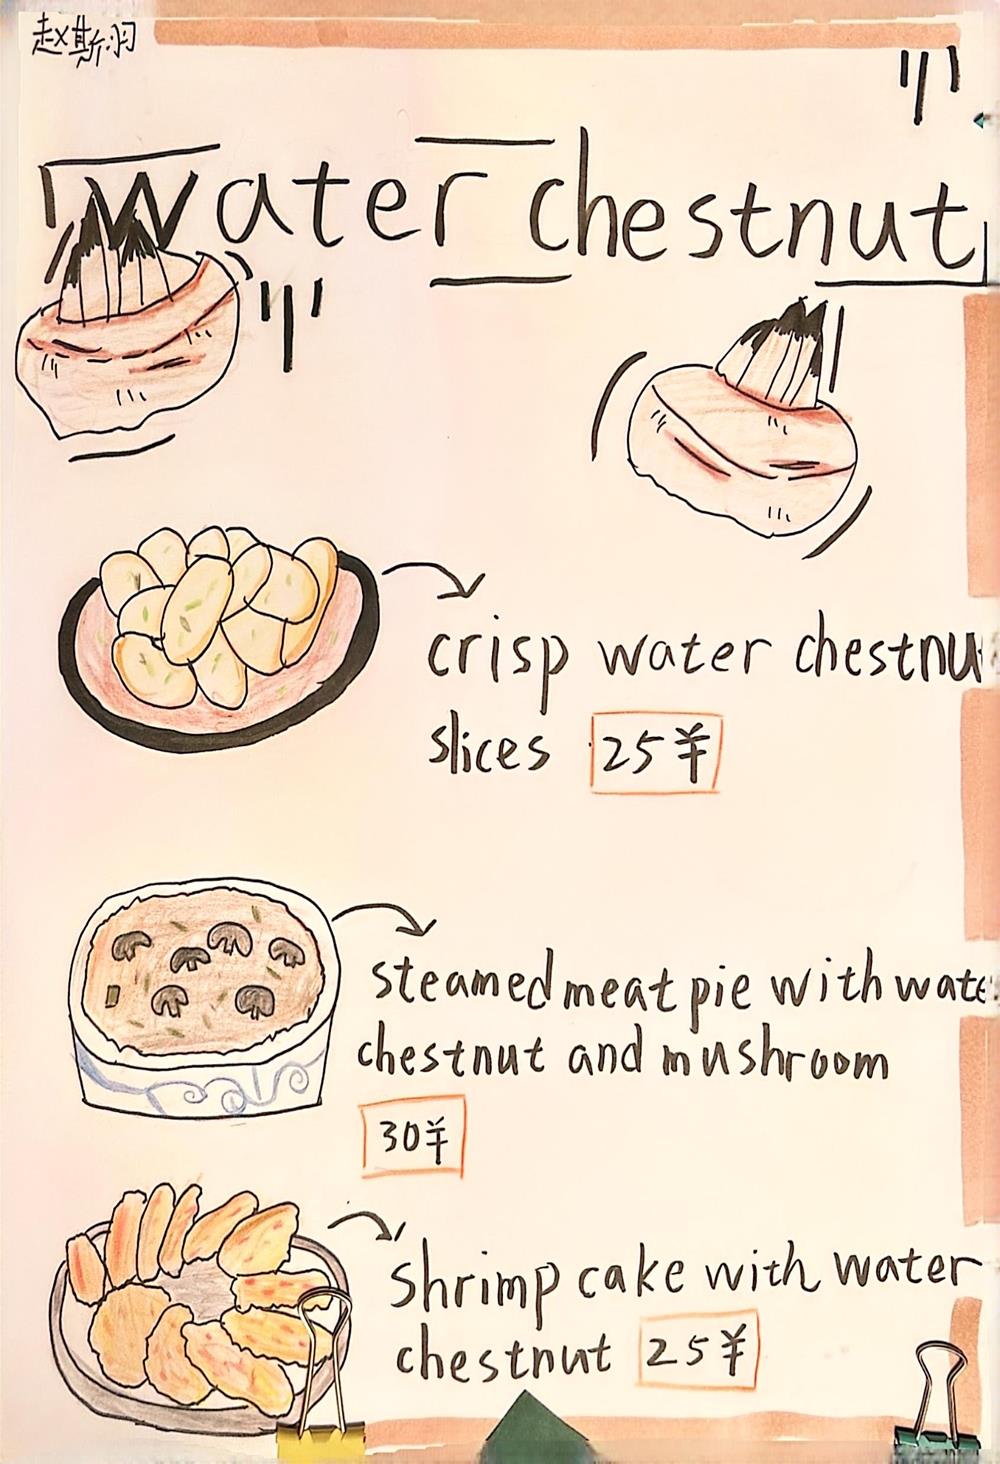 赵斯羽
Water chestnut
crisp water chestnu
slices 25¥
steamed meat pie with wate
chestnut and mushroom
30¥
shrimp cake with water
chestnut 25¥